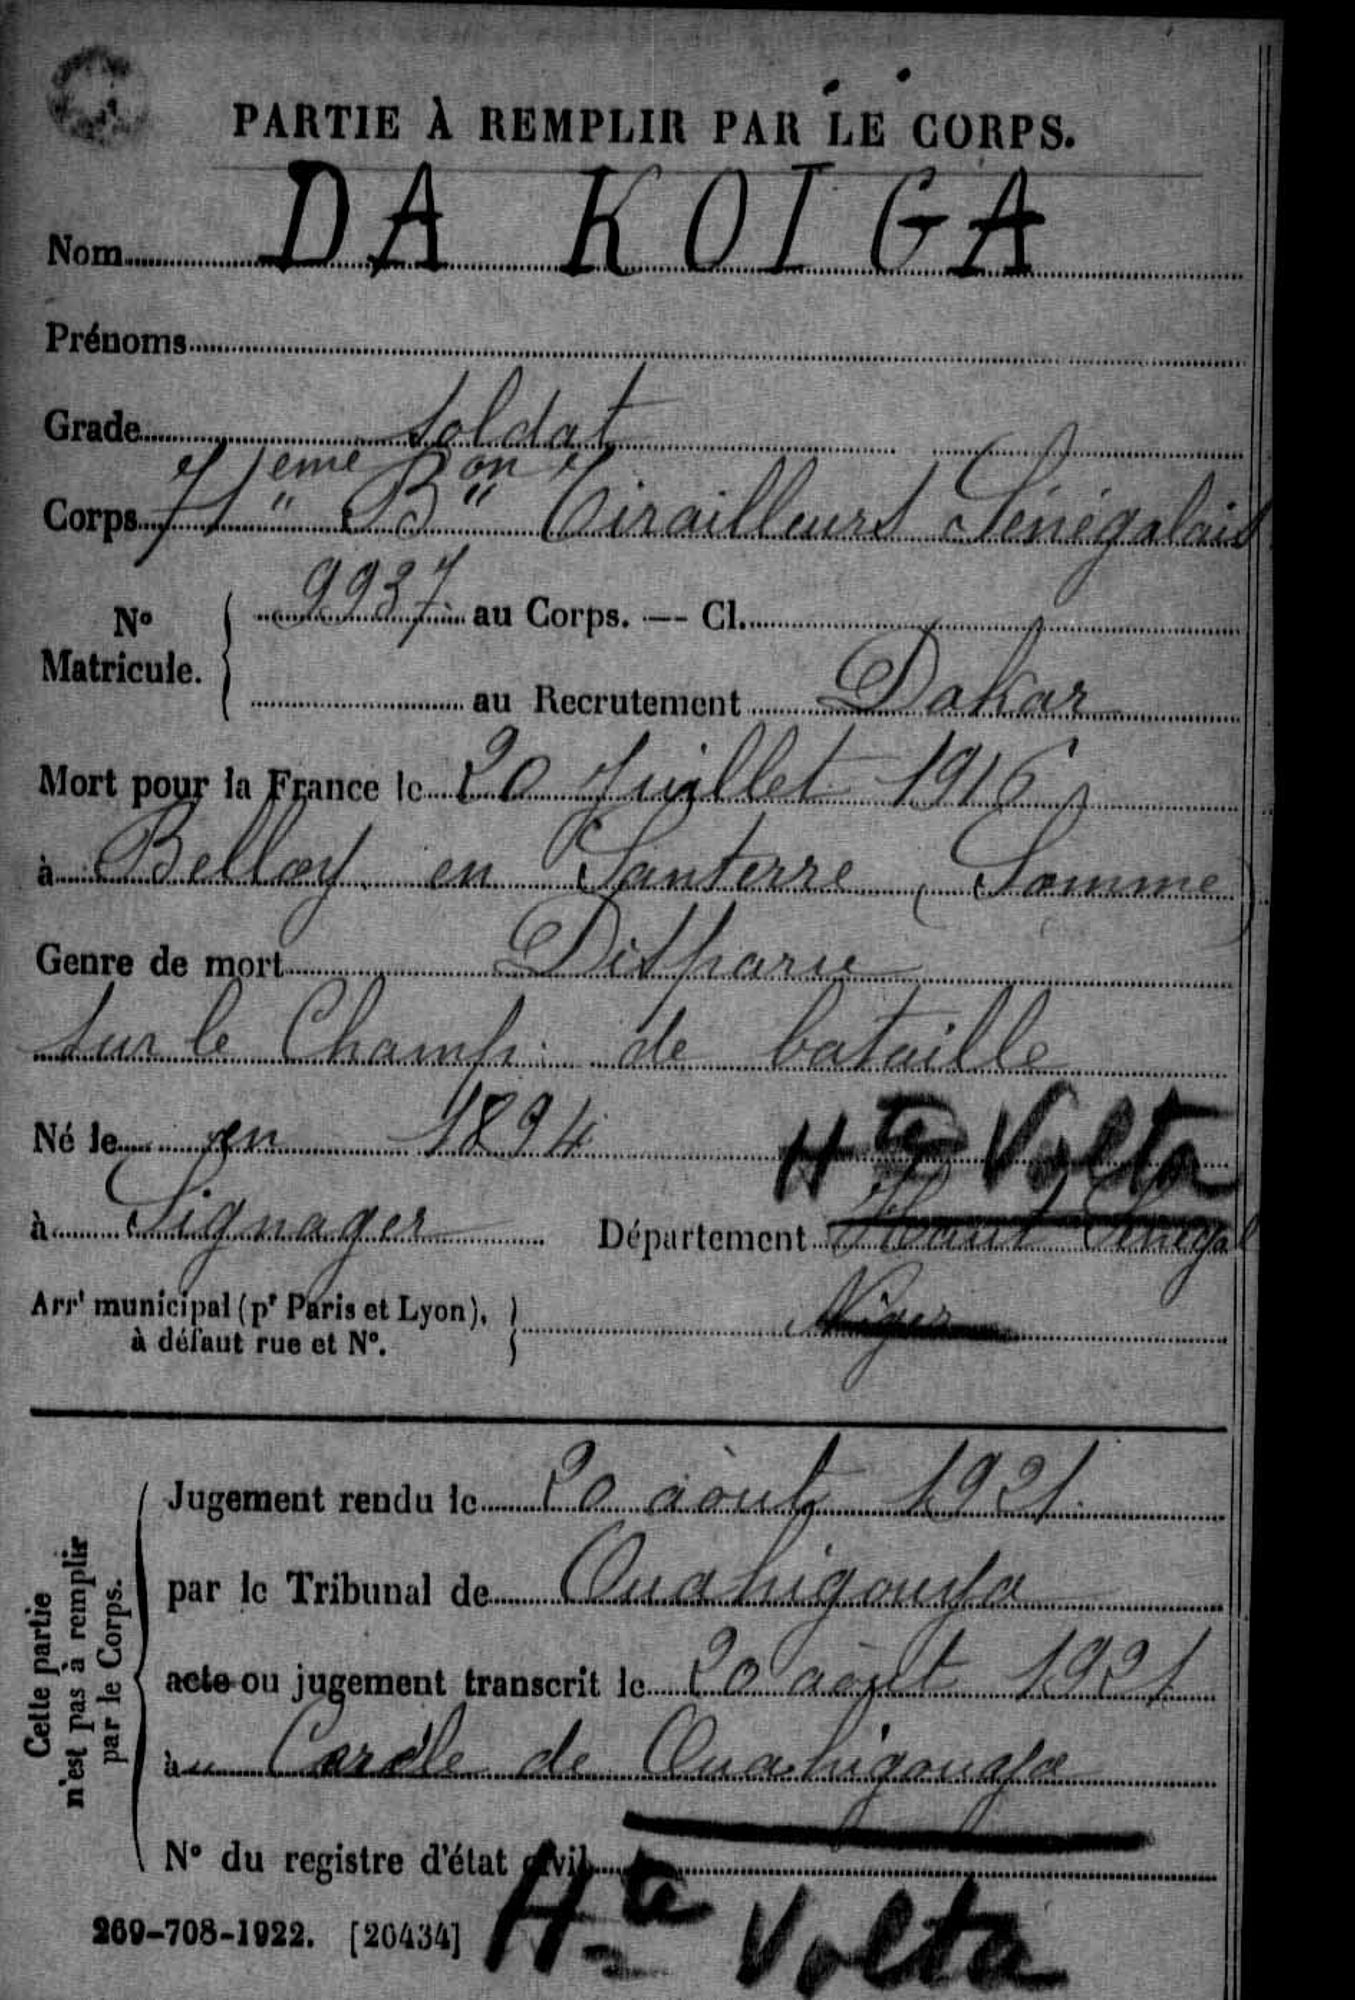 PARTIE À REMPLIR PAR LE CORPS.
Nom DA KOIGA
Prénoms
Grade Soldat
Corps 71ème Bon Tirailleurs Sénégalais
No Matricule. 9937 au Corps. — Cl.
au Recrutement Dakar
Mort pour la France le 20 Juillet 1916
à Belloy en Santerre (Somme)
Genre de mort Disparu
sur le Champ de bataille
Né le en 1894 Hte Volta
à Signager Département Haut Sénégal
Arrt municipal (pr Paris et Lyon), à défaut rue et No. Niger
Cette partie n'est pas à remplir par le Corps.
Jugement rendu le 20 août 1921
par le Tribunal de Ouahigouya
acte ou jugement transcrit le 20 août 1921
au Cercle de Ouahigouya
No du registre d'état civil
269-708-1922. [20434] Hte Volta